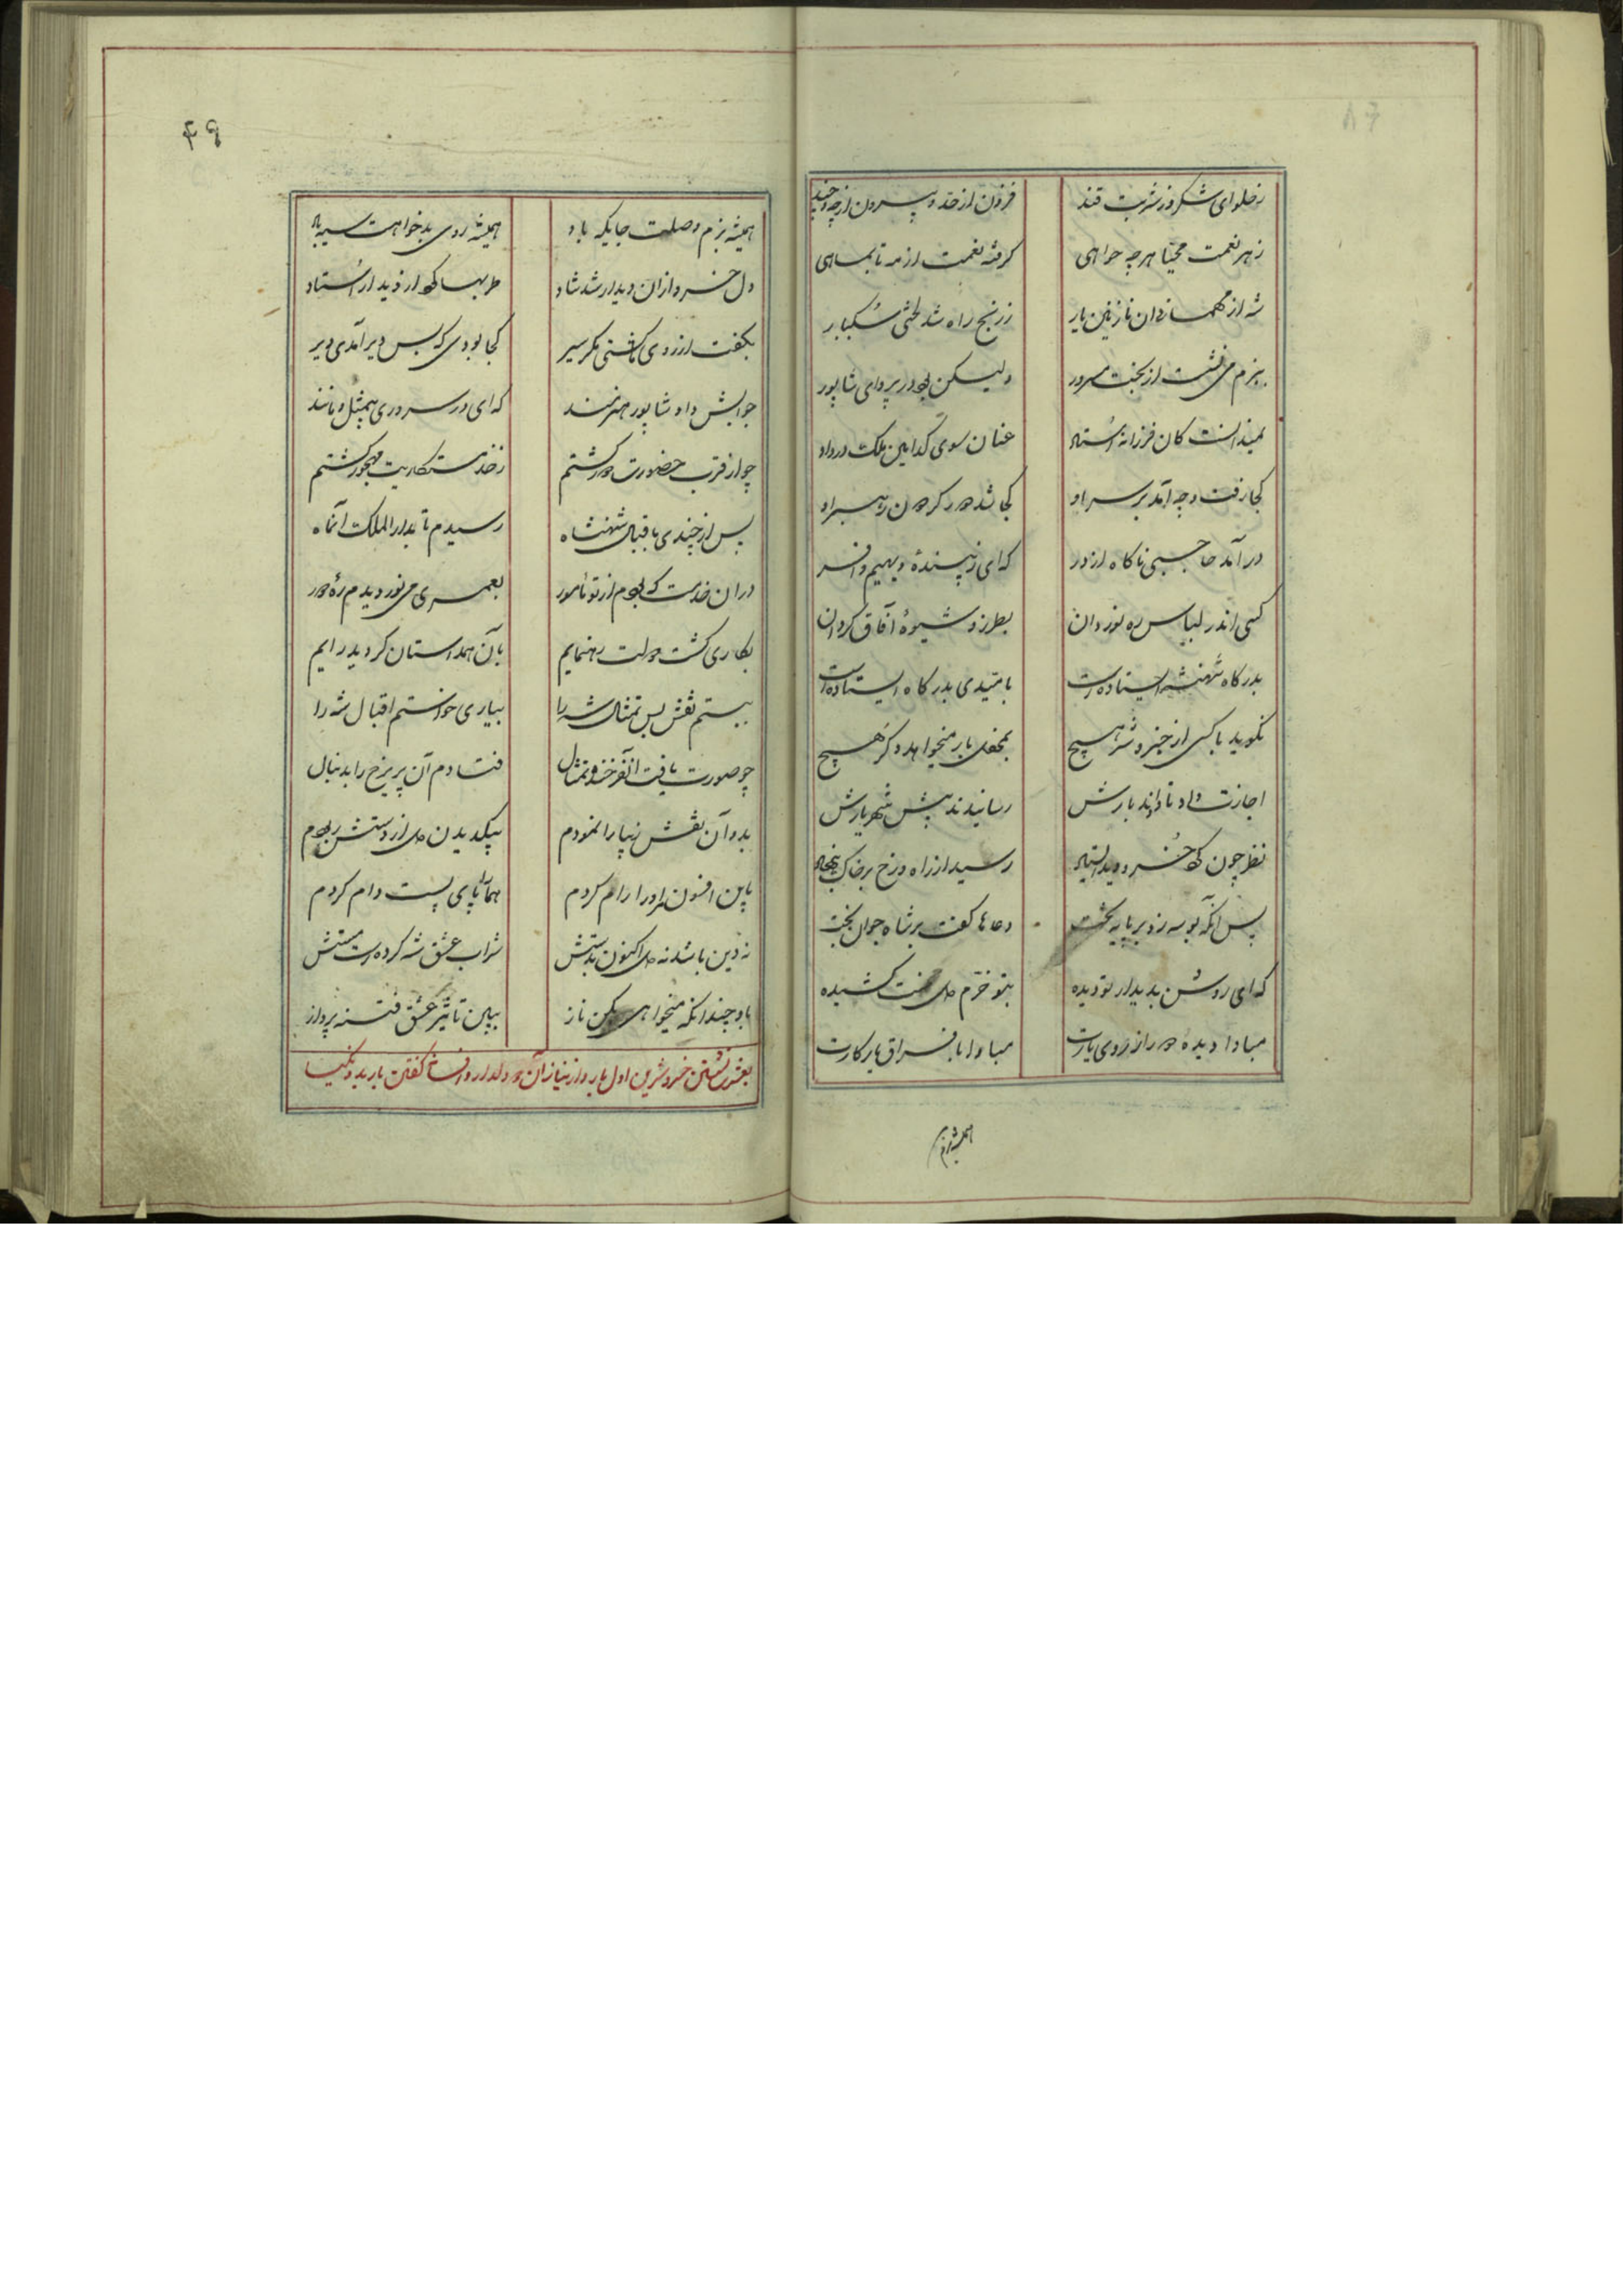 ز حلوای شکر وز شربت قند فزون از حد و بیرون از چه و چند
ز هر نعمت مهیا هر چه خواهی گرفته نعمت از مه تا بماهی
شه از مهمانی آن نازنین یار ز رنج راه شد لختی سبکبار
ببزم می نشست از بخت مسرور ولیکن بود در پروای شاپور
نمیدانست کان فرزانه استاد عنان سوی کدامین ملک در داد
کجا رفت و چه آمد بر سر او کجا شد دور گردون رهبر او
در آمد حاجبی ناگاه از در که ای زیبندهٔ دیهیم و افسر
کسی اندر لباس ره نوردان بطرز و شیوهٔ آفاق گردان
بدرگاه شهنشه ایستاده است بامیدی بدرگاه ایستاده است
نگوید با کسی از خیر و شر هیچ بمحفل بار میخواهد دگر هیچ
اجازت داد تا دادند بارش رسانیدند پیش شهریارش
نظر چون کرد خسرو دید استاد رسید از راه و رخ بر خاک بنهاد
پس آنگه بوسه زد بر پایه تخت دعاها گفت بر شاه جوان بخت
که ای روشن بدیدار تو دیده بتو خرم دل محنت کشیده
مبادا دیده دور از روی یارت مبادا با فراق یار کارت
همیشه بزم
۶۹
همیشه بزم وصلت جایگه باد همیشه روی بدخواهت سیه باد
دل خسرو از آن دیدار شد شاد طربها کرد از دیدار استاد
بگفت از روی ما گشتی مگر سیر کجا بودی که بس دیر آمدی دیر
جوابش داد شاپور هنرمند که ای در سروری بیمثل و مانند
چو از قرب حضورت دور گشتم ز خدمتکاریت مهجور گشتم
پس از چندی باقبال شهنشاه رسیدم تا بدار الملک آنماه
در آن خدمت که بودم از تو مامور بعمری می نوردیدم ره دور
بکاری گشت دولت رهنمایم بآن همداستان گردید رایم
ببستم نقش بس تمثال شه را بیاری خواستم اقبال شه را
چو صورت یافت آن فرخنده تمثال فتادم آن پریرخ را بدنبال
بدو آن نقش زیبا را نمودم بیکدیدن دل از دستش ربودم
باین افسون مر او را رام کردم هما را پای بست دام کردم
نه دین باشد نه دل اکنون بدستش شراب عشق شه کرده است مستش
باو چندانکه میخواهی بکن ناز ببین تاثیر عشق فتنه پرداز
بعشرت نشستن خسرو و شیرین اول بار و از نیاز آن دو دلدار و افسانه گفتن باربد و نکیسا